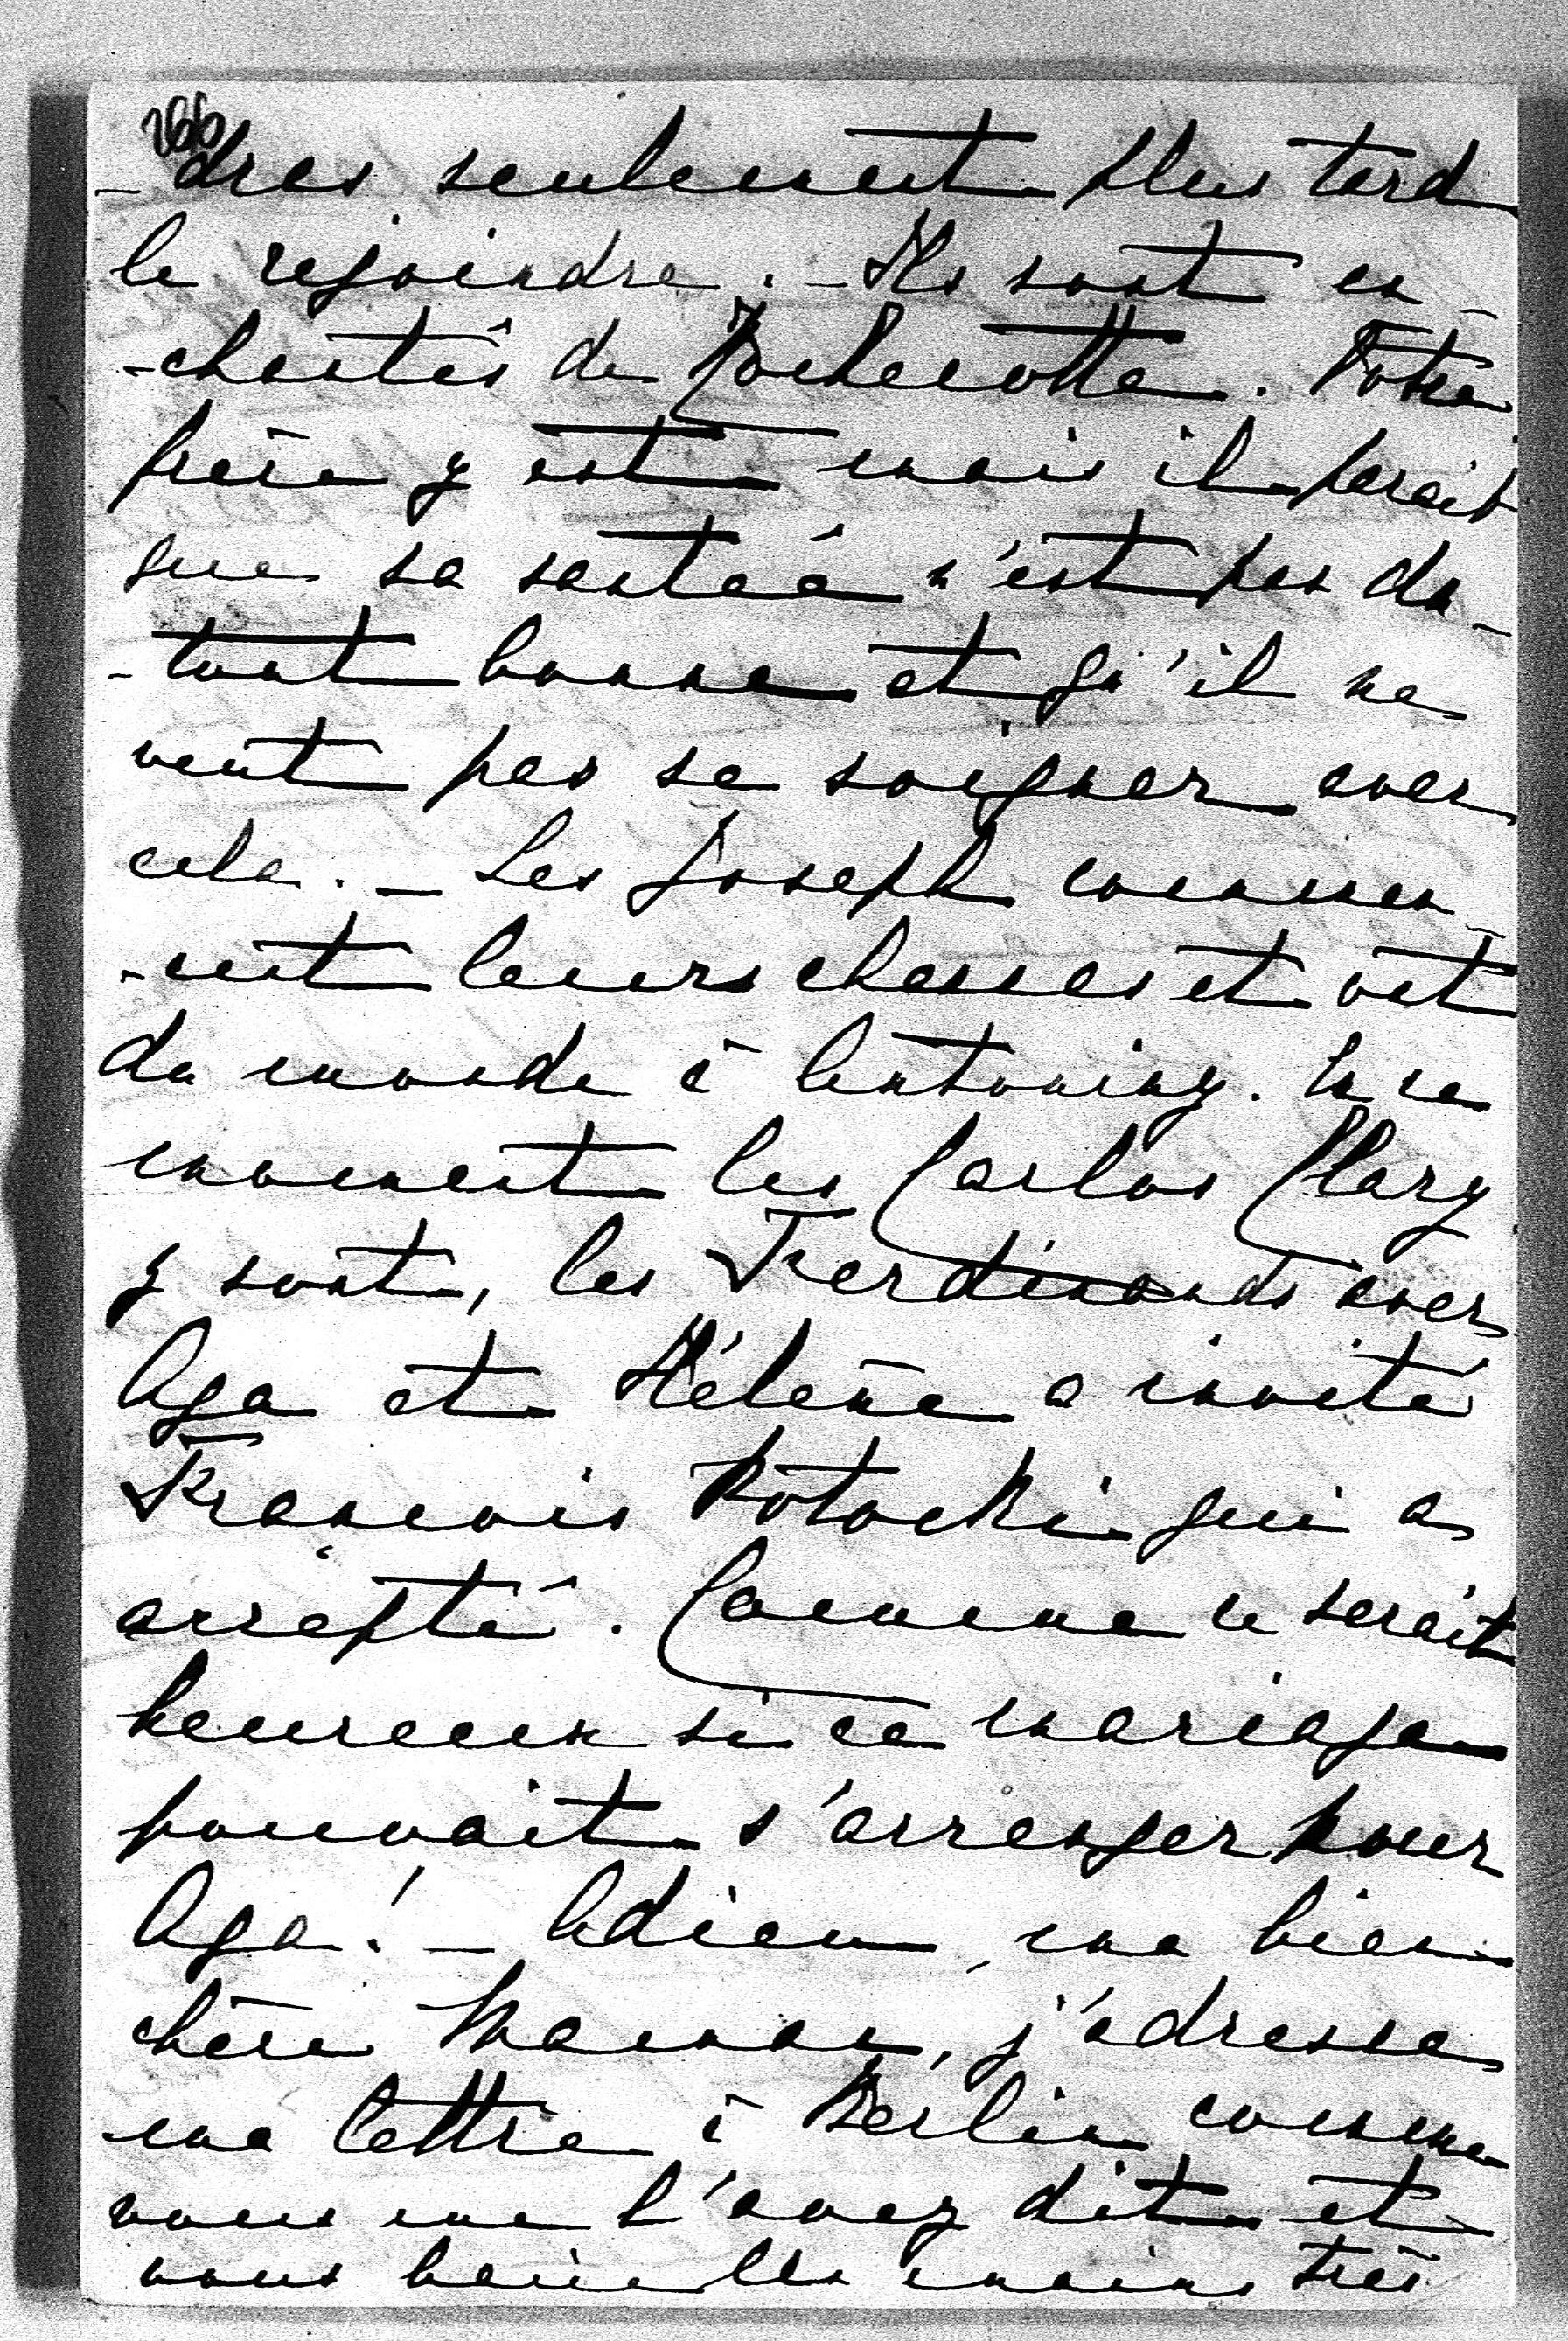 266
-dres seulement plus tard
le rejoindre. - Ils sont en-
-chantés de Rochecotte. Votre
frère y est mais il parait
que sa santé n'est pas du-
-tout bonne et qu'il ne
veut pas se soigner avec
cela. - Les Joseph commen-
-cent leurs chasses et ont
du monde à Antoniny. En ce
moment les Carlos Clary
y sont, les Ferdinands avec
Aga et Hélène a invité
François Potocki qui a
accepté. Comme ce serait
heureux si ce mariage
pouvait s'arranger pour
Aga! - Adieu, ma bien
chère Maman, j'adresse
ma lettre à Berlin comme
vous me l'avez dit et
vous baise les mains très